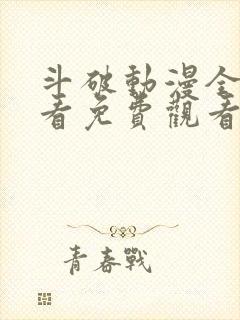 斗破動漫全
看免費觀看
青春戰